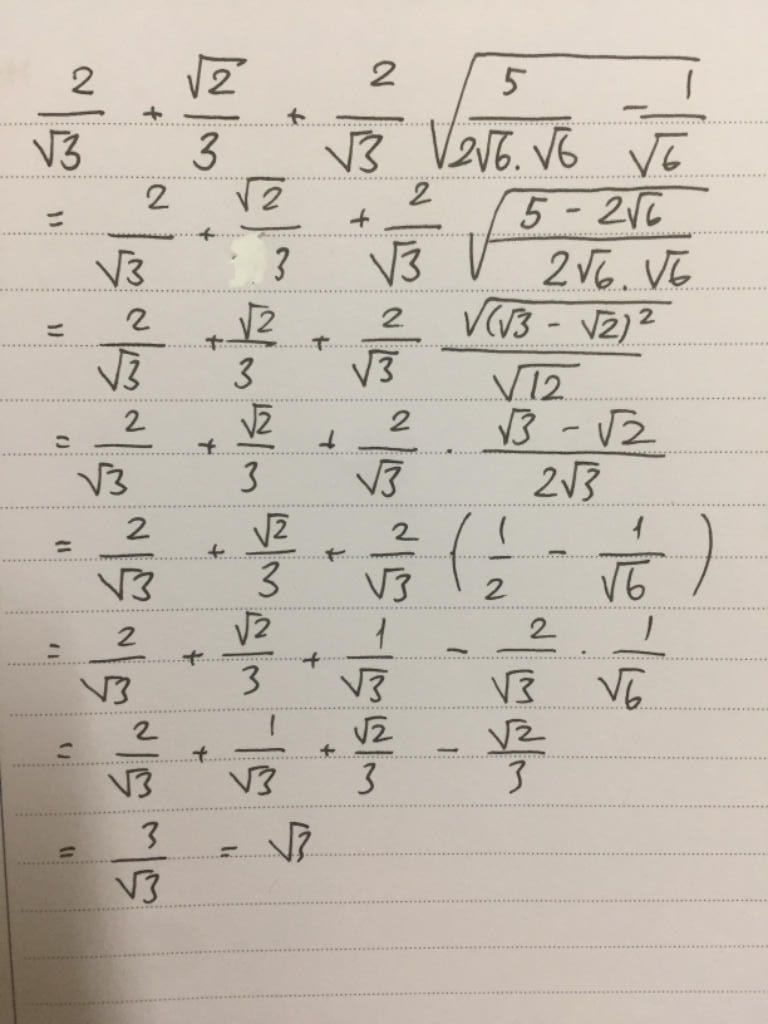 2/√3 + √2/3 + 2/√3 √(5/(2√6.√6) - 1/√6)
= 2/√3 + √2/3 + 2/√3 √((5 - 2√6)/(2√6.√6))
= 2/√3 + √2/3 + 2/√3 √((√3 - √2)²)/√12
= 2/√3 + √2/3 + 2/√3 . (√3 - √2)/(2√3)
= 2/√3 + √2/3 + 2/√3 (1/2 - 1/√6)
= 2/√3 + √2/3 + 1/√3 - 2/√3 . 1/√6
= 2/√3 + 1/√3 + √2/3 - √2/3
= 3/√3 = √3